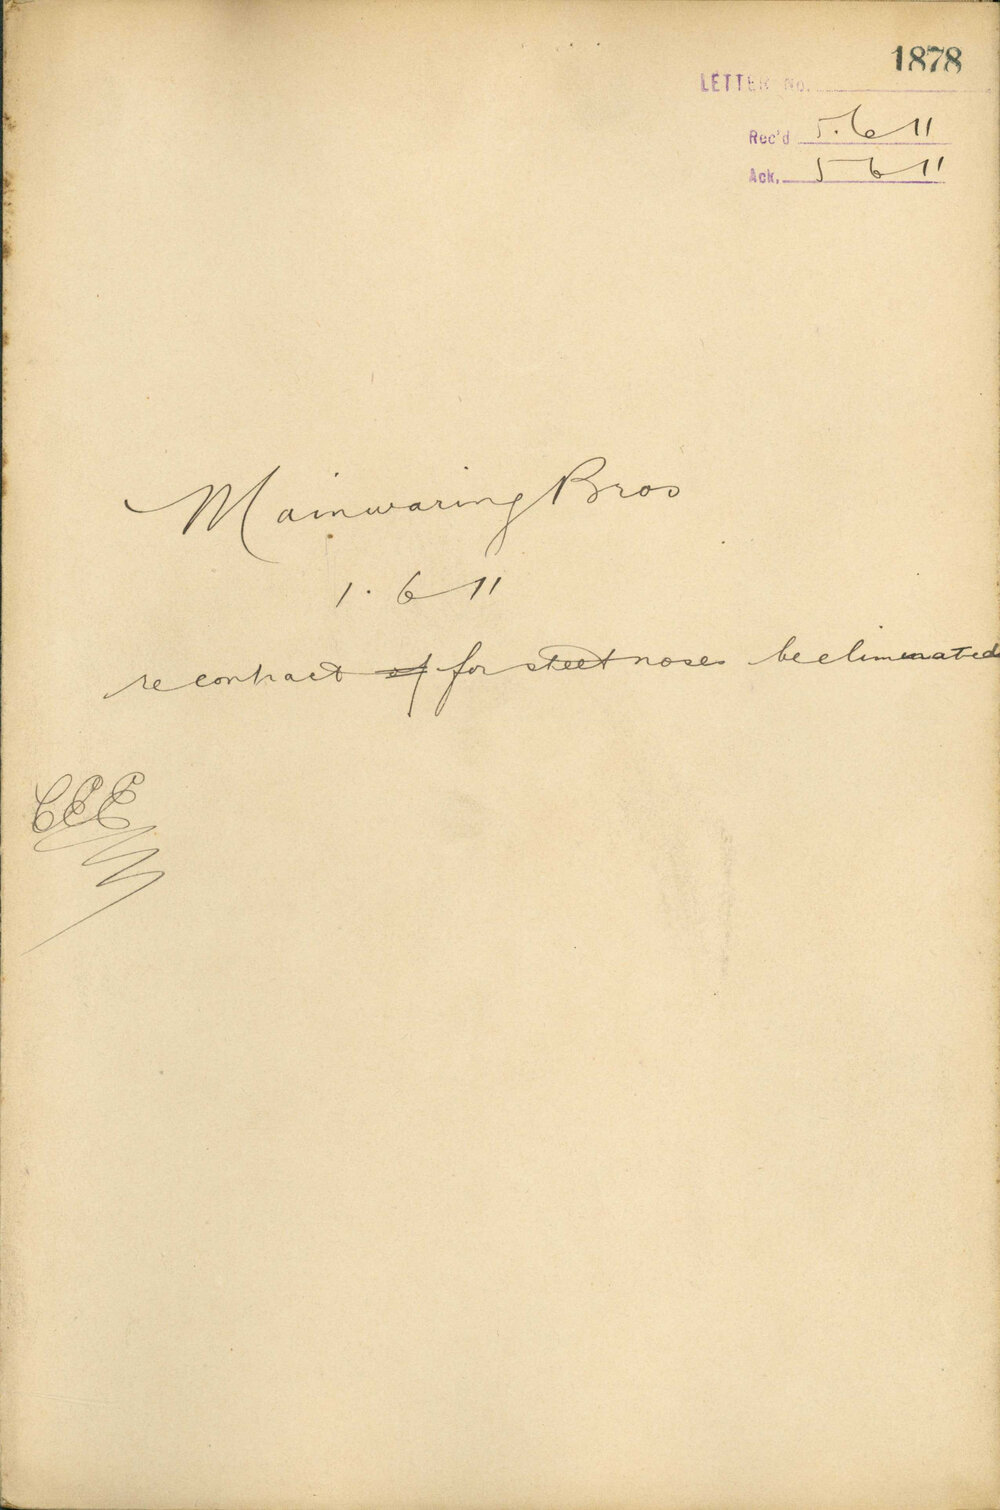 1878
LETTER No.
Rec'd 5.6 11
Ack. 5 6 11
Mainwaring Bros
1.6 11
re contract of for steel noses be eliminated
CEE